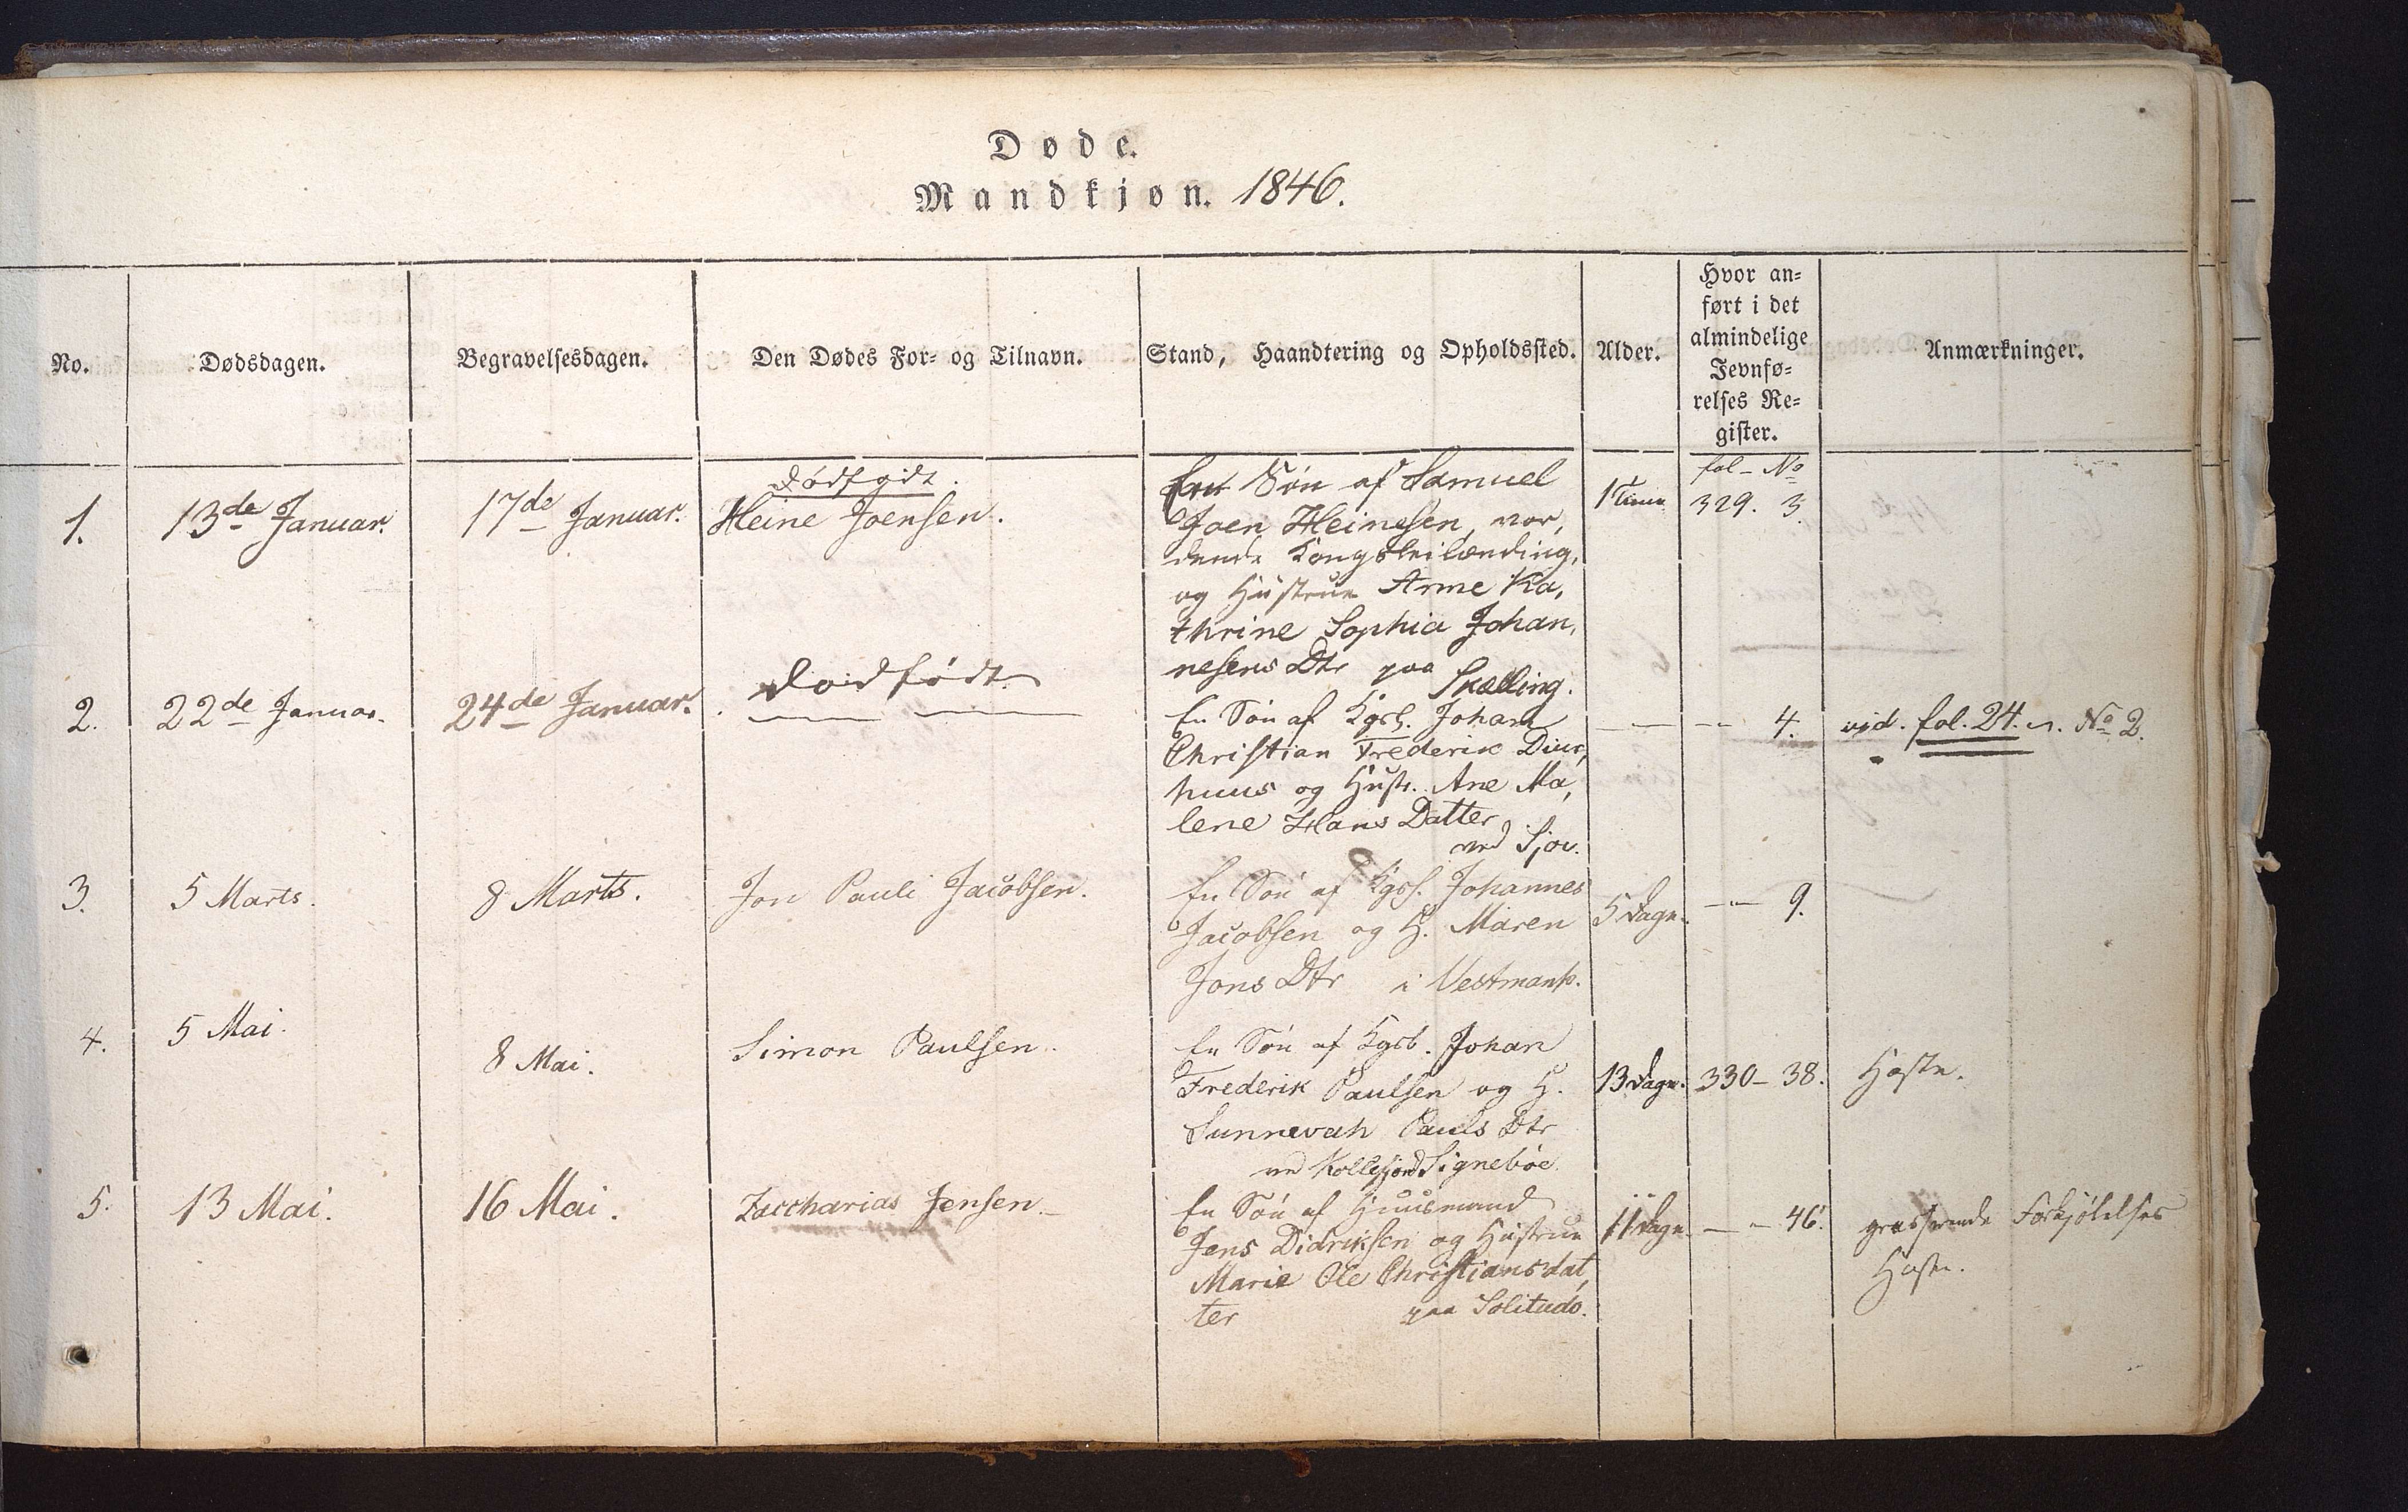 Døde.
Mandkjøn. 1846.
No.
Dødsdagen.
Begravelsesdagen.
Den Dødes For- og Tilnavn.
Stand, Haandtering og Opholdssted.
Alder.
Hvor an-
ført i det
almindelige
Jevnfø-
relses Re-
gister.
Anmærkninger.
1.
13de Januar.
17de Januar.
Heine Joensen.
En Søn af Samuel
Joen Heinesen, vor,
dende Kongsleilænding,
og Hustrue Anne Ka,
thrine Sophia Johan,
nesens Dtr paa
Skælling.
1 Time
fol - No
329. 3.
2.
22de Januar.
24de Januar.
Dødfødt
En Søn af Kgsb. Johan
Christian Frederik Diur,
huus og Hustr. Ane Ma,
lene Hans Datter
ved Sjov.
— — 4.
vid. fol. 24. No 2.
3.
5 Marts.
8 Marts.
Jon Pauli Jacobsen.
En Søn af Kgsf. Johannes
Jacobsen og H. Maren
Jons Dtr i Vestmanh.
5 Dage.
— 9.
4.
5 Mai.
8 Mai.
Simon Paulsen.
En Søn af Kgsb. Johan
Frederik Paulsen og H.
Sunnevah Pauls Dtr
ved Kollefjord Signebøe.
13 Dage.
330 - 38.
Hoste.
5.
13 Mai.
16 Mai.
Zaccharias Jensen.
En Søn af Huusmand
Jens Didriksen og Hustrue
Marie Ole Christiansdat,
ter paa Solitudo.
11 Dage.
— - 46.
grasserende Forkjølelses
Hoste.